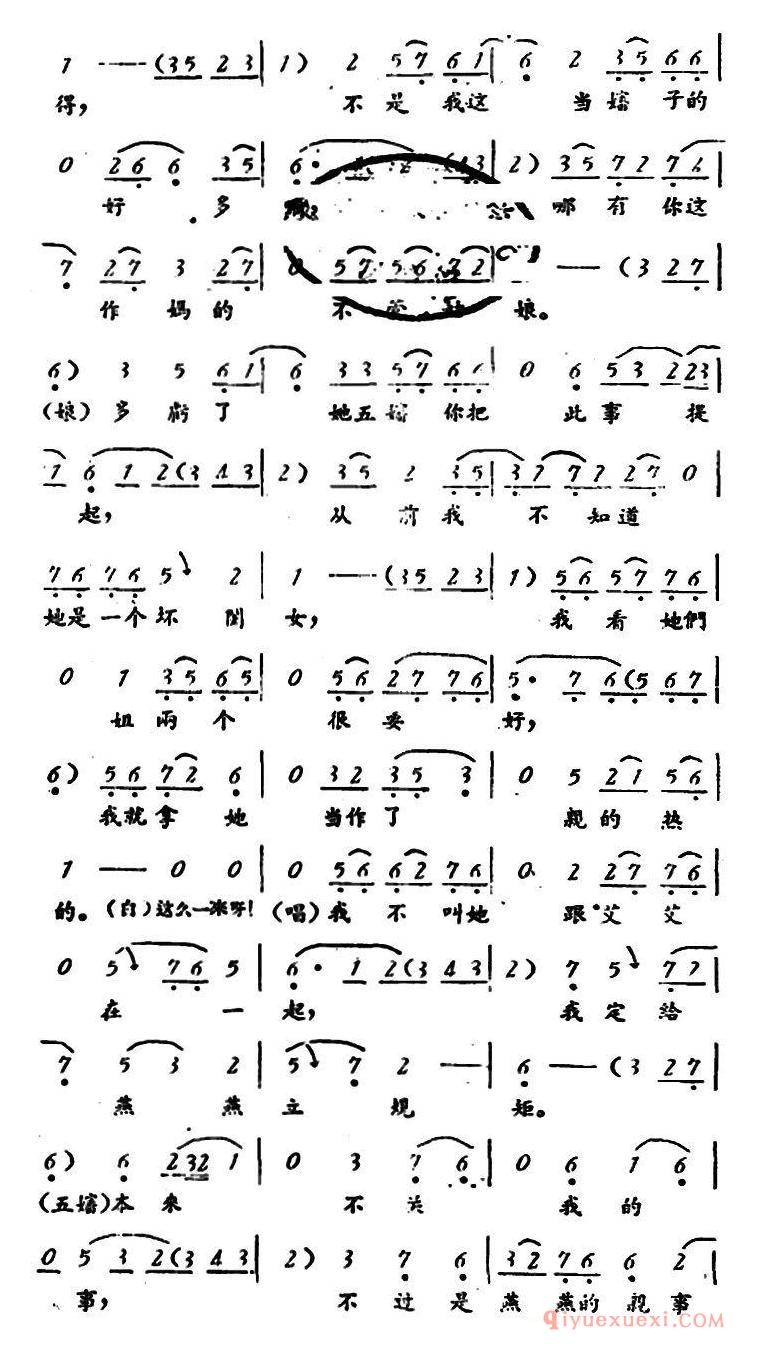 1 —— (35 23 | 1) 2 57 61 | 6 2 35 66 |
得, 不是我这 当嬸子的
0 26 6 35 | 6· (43 | 2) 35 72 76 |
好 多 哪有你这
7 27 3 27 | 0 57 56 72 | —— (3 27 |
作媽的 不 娘。
6) 3 5 61 | 6 33 57 66 | 0 6 532 23 |
(娘)多虧了 她五嬸你把 此事提
1 6 1 2(3 43 | 2) 35 2 35 | 32 72 27 0 |
起, 从前我不知道
76 76 5 2 | 1 —— (35 23 | 1) 56 57 76 |
她是一个坏閨女, 我看她們
0 1 35 65 | 0 56 27 76 | 5· 7 6(5 67 |
姐兩个 很要好,
6) 56 72 6 | 0 32 35 3 | 0 5 21 56 |
我就拿她 当作了 親的热
1 —— 0 0 | 0 56 62 76 | 0 2 27 76 |
的。(白)这久一来呀! (唱)我不叫她 跟艾艾
0 5 76 5 | 6· 1 2(3 43 | 2) 7 5 77 |
在一起, 我定給
7 5 3 2 | 5 7 2 — | 6 —— (3 27 |
燕燕立規矩。
6) 6 232 1 | 0 3 7 6 | 0 6 1 6 |
(五嬸)本来 不关 我的
0 5 3 2(3 43 | 2) 3 7 6 | 32 76 6 2 |
事, 不过是燕燕的親事
qiyuexuexi.com